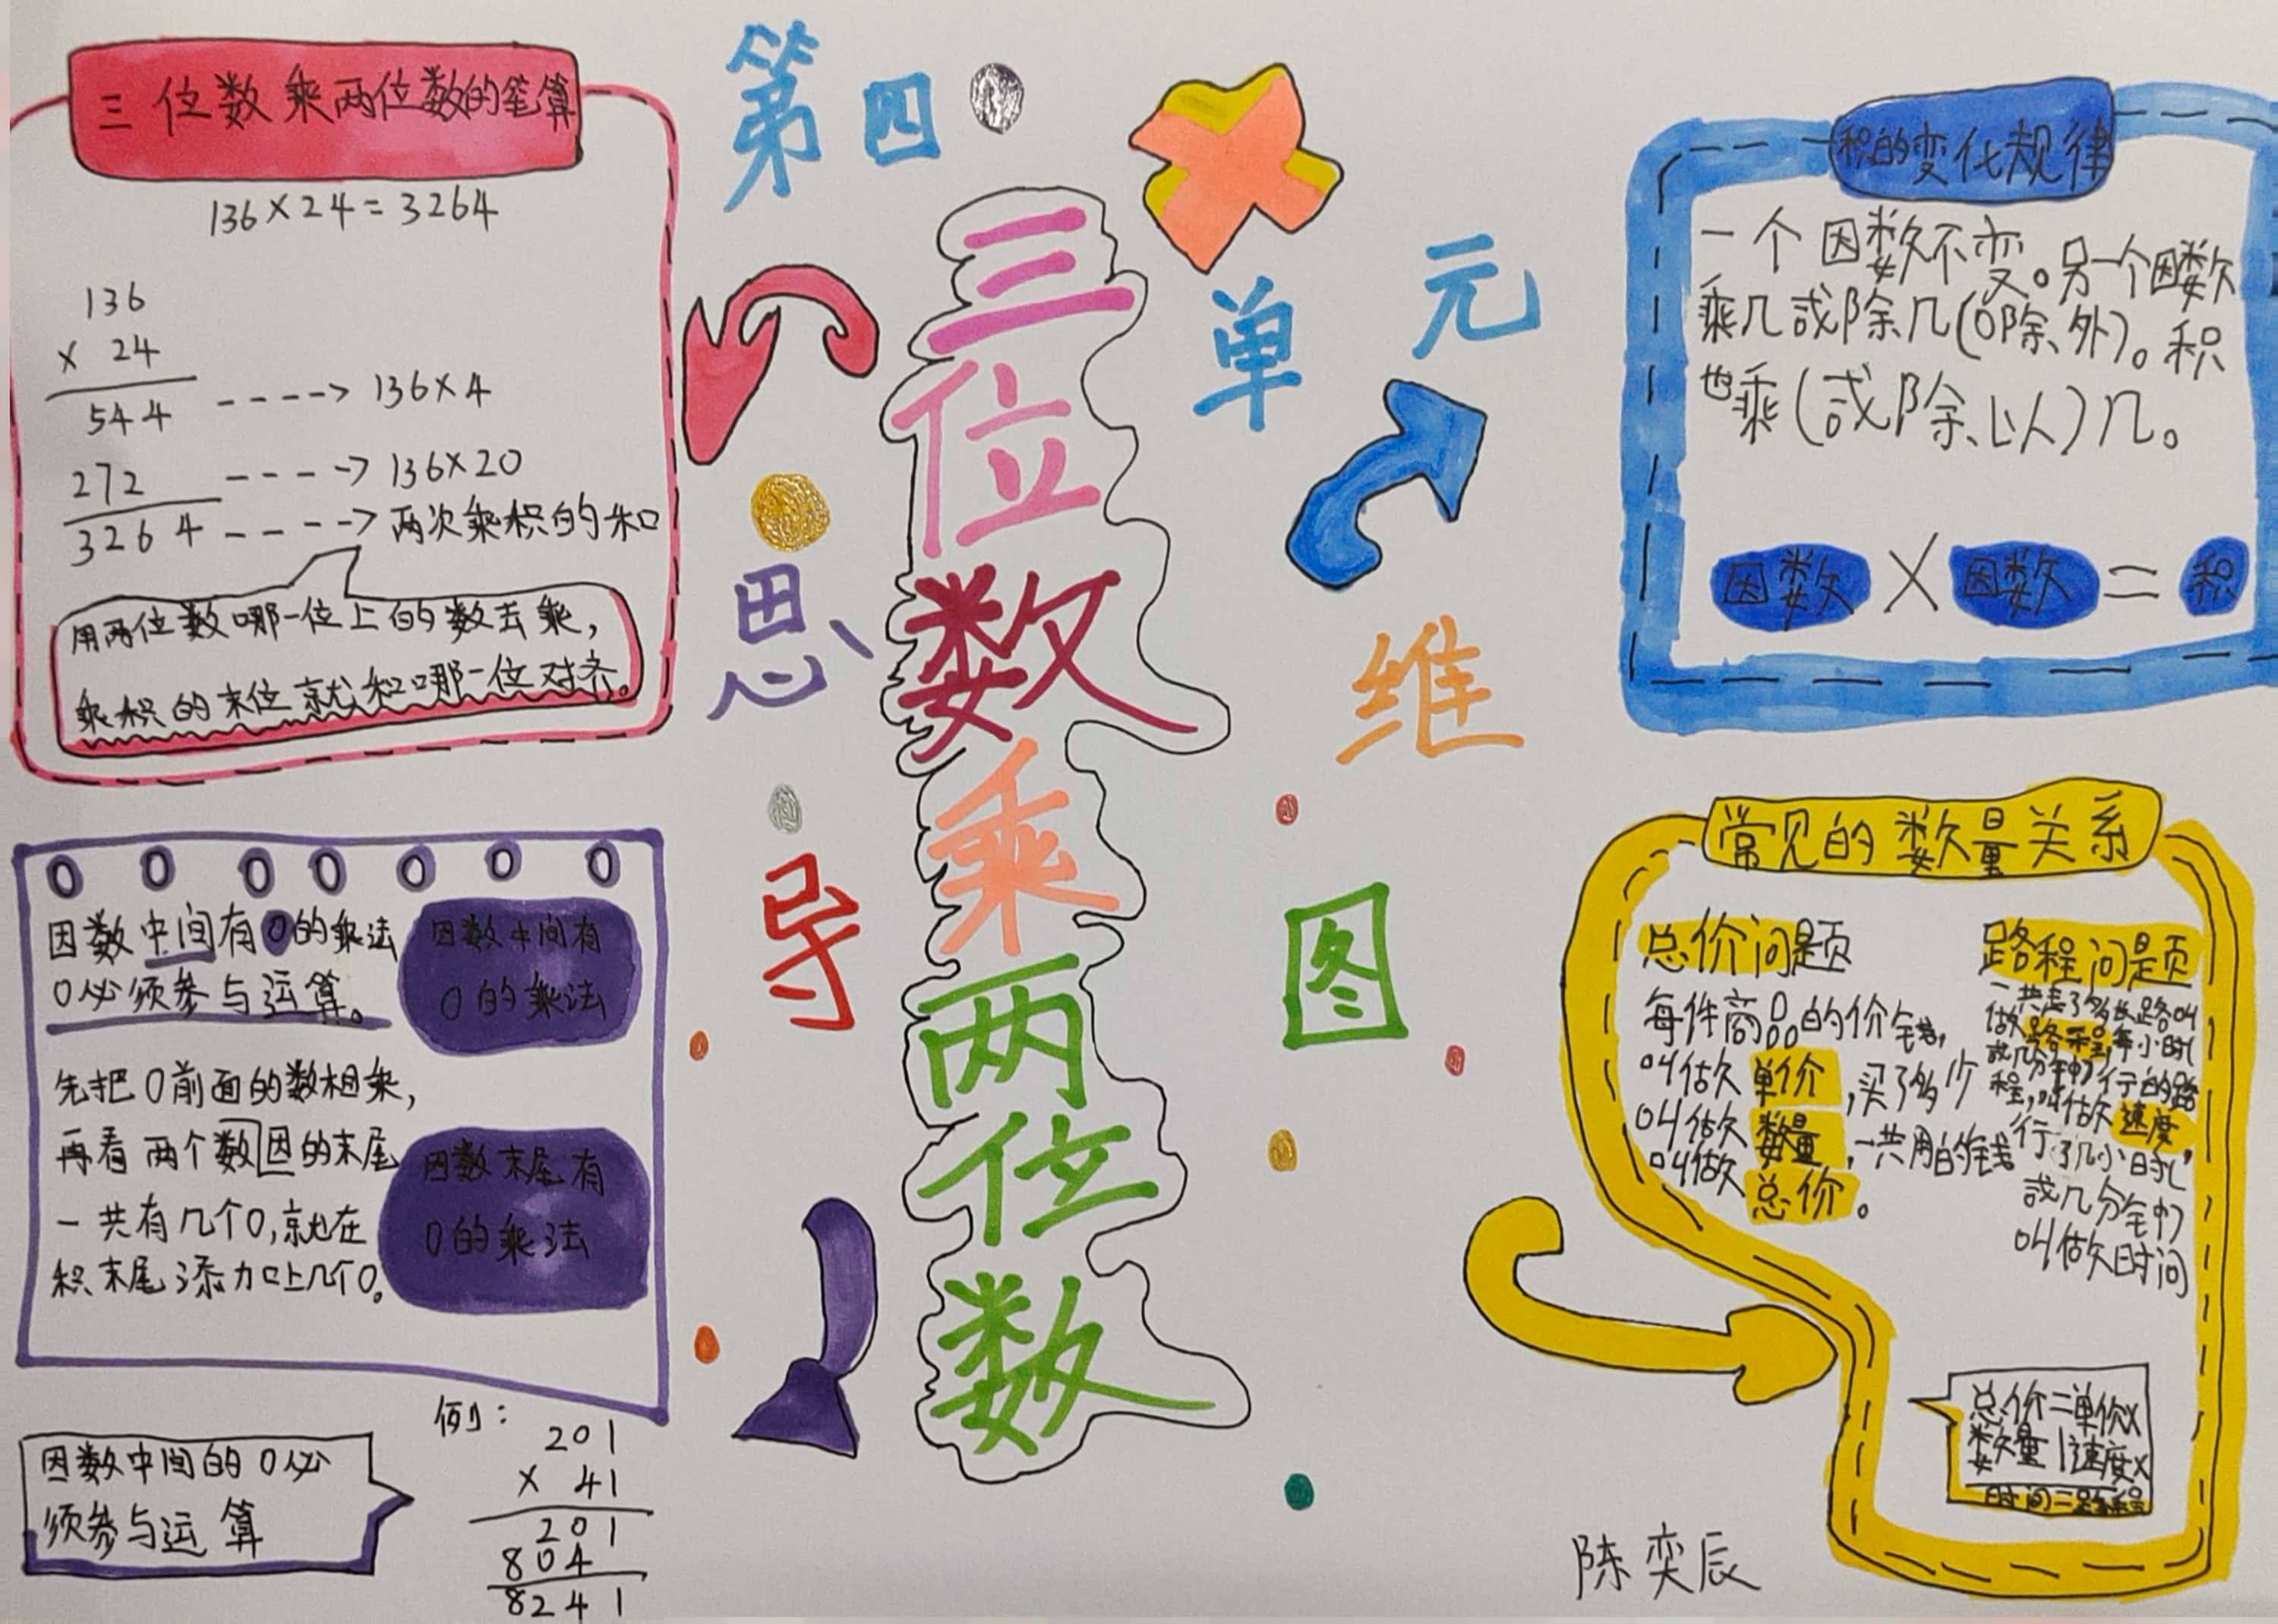 第四单元
三位数乘两位数
思维导图
三位数乘两位数的笔算
136×24=3264
136
× 24
544 ----> 136×4
272 ----> 136×20
3264 ----> 两次乘积的和
用两位数哪一位上的数去乘，
乘积的末位就和哪一位对齐。
因数中间有0的乘法
0必须参与运算。
因数中间有
0的乘法
先把0前面的数相乘，
再看两个数因的末尾
一共有几个0，就在
积末尾添加上几个0。
因数末尾有
0的乘法
因数中间的0必
须参与运算
例：
201
× 41
201
804
8241
积的变化规律
一个因数不变。另一个因数
乘几或除几(0除外)。积
也乘(或除以)几。
因数×因数=积
常见的数量关系
总价问题
每件商品的价钱，
叫做单价，买了多少
叫做数量，一共用的钱
叫做总价。
路程问题
一共走了多长路叫
做路程，每小时(
或几分钟)行的路
程，叫做速度，
行了几小时(
或几分钟)
叫做时间
总价=单价×
数量|速度×
时间=路程
陈奕辰